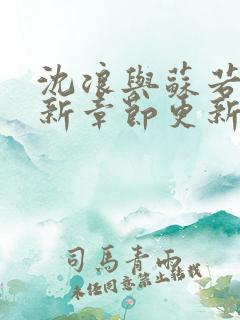 沈浪與蘇若
新章節更新
司馬青雨
未经同意禁止转载